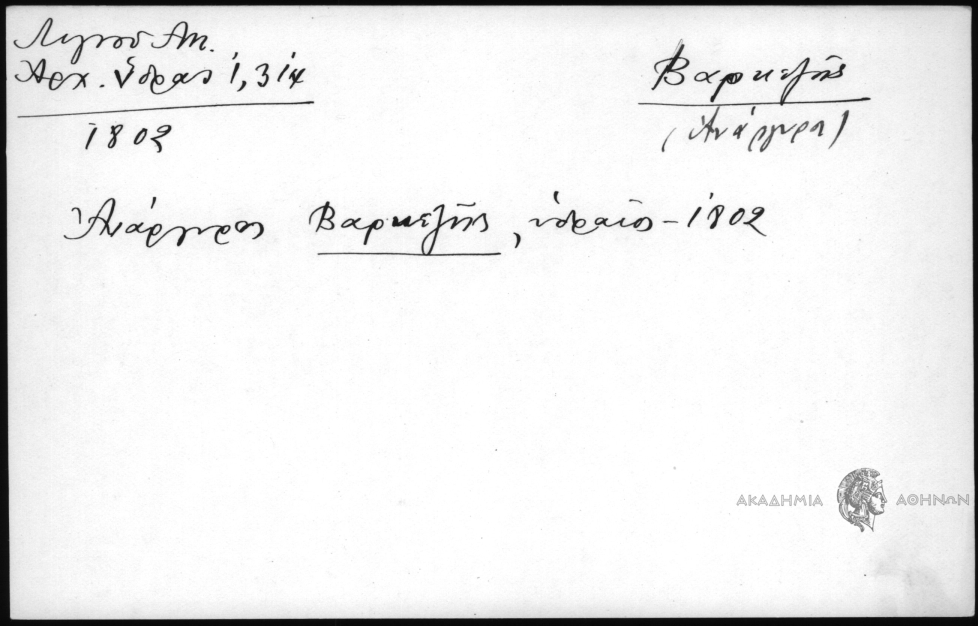 Λιγνοῦ Ἀν.
Ἀρχ. Ὕδρας 1, 314
1802
Βαρκεζῆς
(Ἀνάργυρος)
Ἀνάργυρος Βαρκεζῆς, ὑδραῖος - 1802
ΑΚΑΔΗΜΙΑ ΑΘΗΝΩΝ